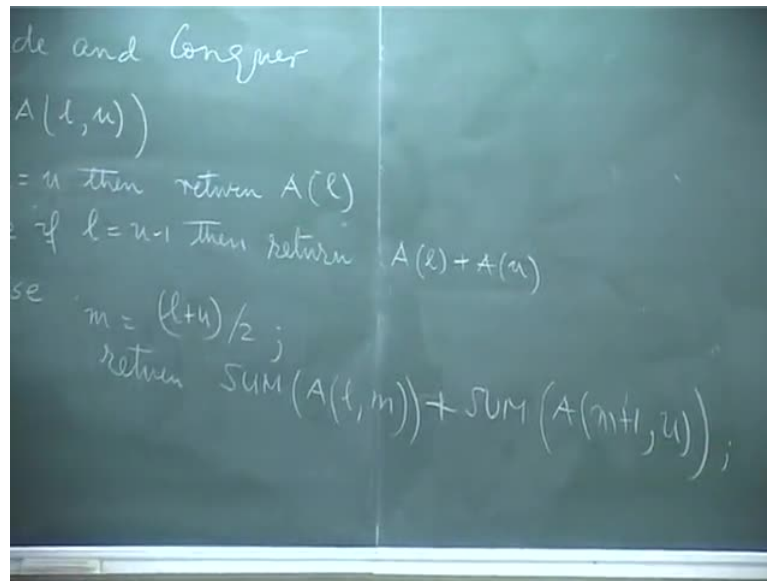 de and Conquer
A(l,u))
= u then return A(l)
if l=u-1 then return A(l)+A(u)
se
m = (l+u)/2 ;
return SUM(A(l,m))+SUM(A(m+1,u));